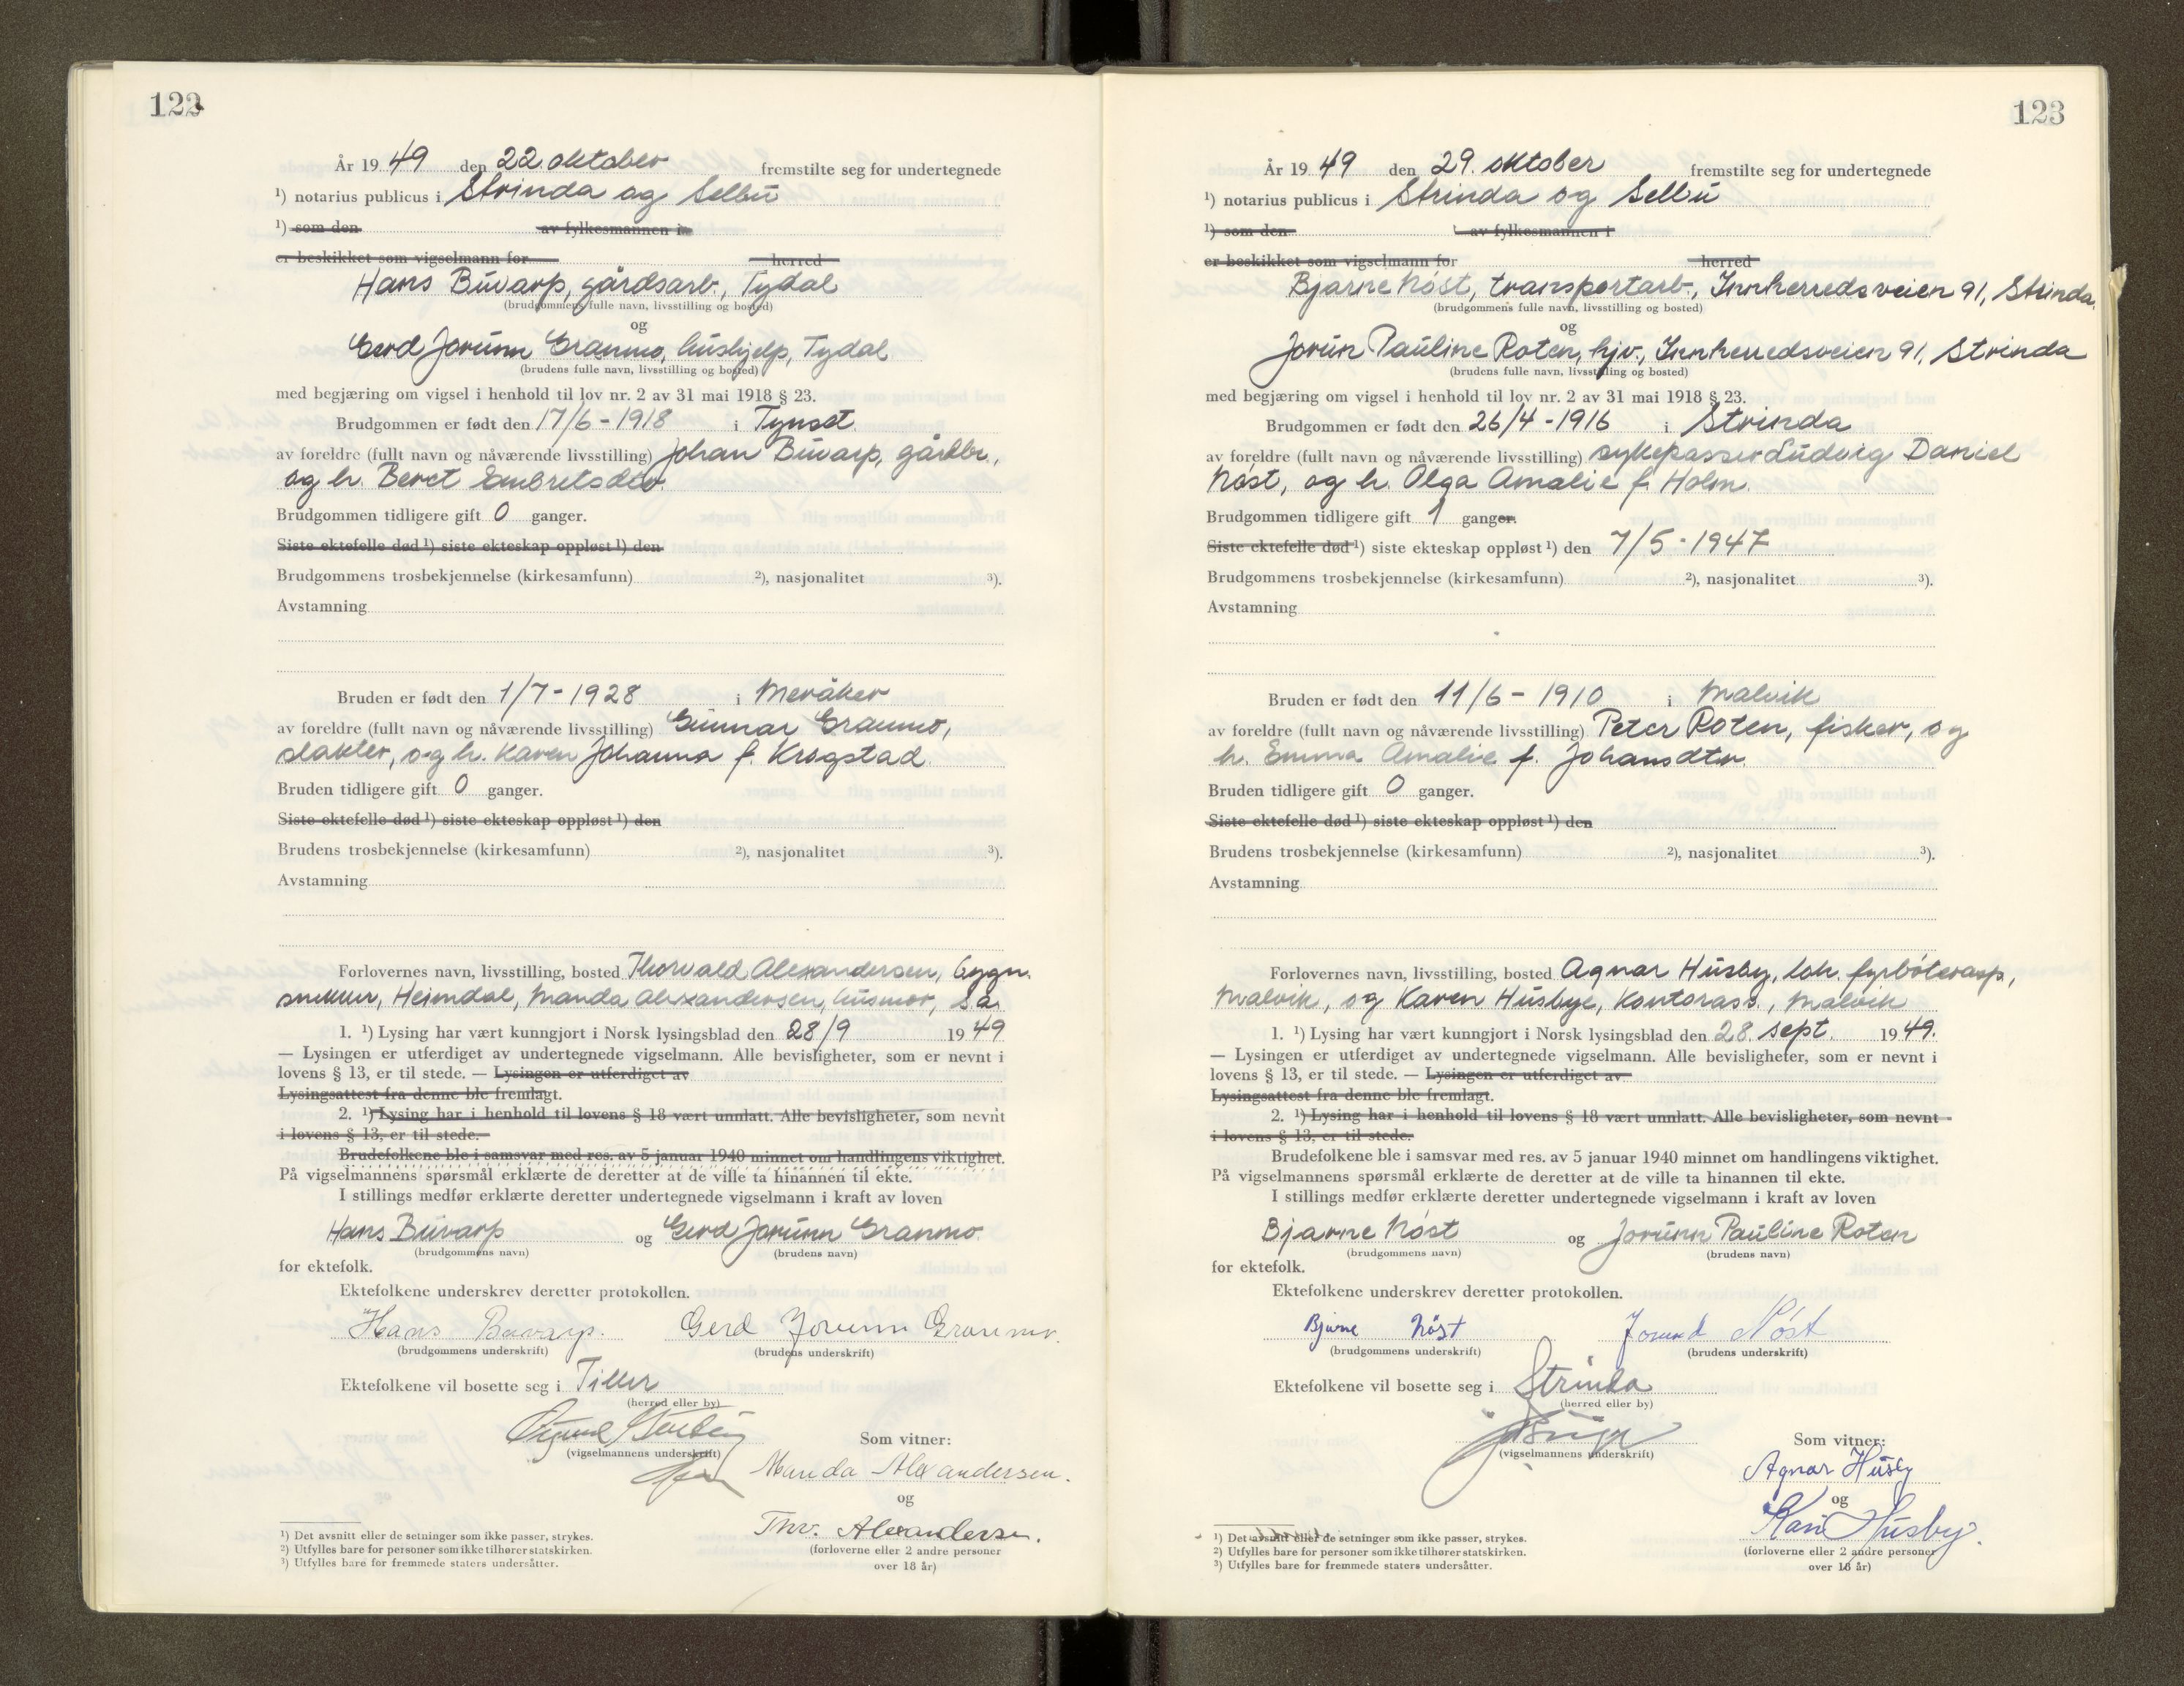 122
År 1949 den 22 oktober fremstilte seg for undertegnede
¹) notarius publicus i Strinda og Selbu
¹) som den av fylkesmannen i
er beskikket som vigselmann for herred
Hans Buvarp, gårdsarb., Tydal
(brudgommens fulle navn, livsstilling og bosted)
og
Gerd Jorunn Granmo, hushjelp, Tydal
(brudens fulle navn, livsstilling og bosted)
med begjæring om vigsel i henhold til lov nr. 2 av 31 mai 1918 § 23.
Brudgommen er født den 17/6 - 1918 i Tynset
av foreldre (fullt navn og nåværende livsstilling) Johan Buvarp, gårdbr.,
og h. Beret Embretsdtr.
Brudgommen tidligere gift 0 ganger.
Siste ektefelle død ¹) siste ekteskap oppløst ¹) den
Brudgommens trosbekjennelse (kirkesamfunn) ²), nasjonalitet ³).
Avstamning
Bruden er født den 1/7 - 1928 i Meråker
av foreldre (fullt navn og nåværende livsstilling) Gunnar Granmo,
slakter, og h. Karen Johanna f. Krogstad
Bruden tidligere gift 0 ganger.
Siste ektefelle død ¹) siste ekteskap oppløst ¹) den
Brudens trosbekjennelse (kirkesamfunn) ²), nasjonalitet ³).
Avstamning
Forlovernes navn, livsstilling, bosted Thorvald Alexandersen, bygn.
snekker, Heimdal, Manda Alexandersen, husmor, s.a.
1. ¹) Lysing har vært kunngjort i Norsk lysingsblad den 28/9 1949
— Lysingen er utferdiget av undertegnede vigselmann. Alle bevisligheter, som er nevnt i
lovens § 13, er til stede. — Lysingen er utferdiget av
Lysingsattest fra denne ble fremlagt.
2. ¹) Lysing har i henhold til lovens § 18 vært unnlatt. Alle bevisligheter, som nevnt
i lovens § 13, er til stede.
Brudefolkene ble i samsvar med res. av 5 januar 1940 minnet om handlingens viktighet.
På vigselmannens spørsmål erklærte de deretter at de ville ta hinannen til ekte.
I stillings medfør erklærte deretter undertegnede vigselmann i kraft av loven
Hans Buvarp og Gerd Jorunn Granmo
(brudgommens navn) (brudens navn)
for ektefolk.
Ektefolkene underskrev deretter protokollen.
Hans Buvarp. Gerd Jorunn Granmo.
(brudgommens underskrift) (brudens underskrift)
Ektefolkene vil bosette seg i Tiller
(herred eller by)
(vigselmannens underskrift)
Som vitner:
Manda Alexandersen.
og
Thv. Alexandersen.
(forloverne eller 2 andre personer
over 18 år)
¹) Det avsnitt eller de setninger som ikke passer, strykes.
²) Utfylles bare for personer som ikke tilhører statskirken.
³) Utfylles bare for fremmede staters undersåtter.
123
År 1949 den 29. oktober fremstilte seg for undertegnede
¹) notarius publicus i Strinda og Selbu
¹) som den av fylkesmannen i
er beskikket som vigselmann for herred
Bjarne Nøst, transportarb., Innherredsveien 91, Strinda.
(brudgommens fulle navn, livsstilling og bosted)
og
Jorun Pauline Roten, hjv., Innherredsveien 91, Strinda
(brudens fulle navn, livsstilling og bosted)
med begjæring om vigsel i henhold til lov nr. 2 av 31 mai 1918 § 23.
Brudgommen er født den 26/4 - 1916 i Strinda
av foreldre (fullt navn og nåværende livsstilling) sykepasser Ludvig Daniel
Nøst, og h. Olga Amalie f. Holm.
Brudgommen tidligere gift 1 ganger.
Siste ektefelle død ¹) siste ekteskap oppløst ¹) den 7/5 - 1947
Brudgommens trosbekjennelse (kirkesamfunn) ²), nasjonalitet ³).
Avstamning
Bruden er født den 11/6 - 1910 i Malvik
av foreldre (fullt navn og nåværende livsstilling) Peter Roten, fisker, og
h. Emma Amalie f. Johansdtr.
Bruden tidligere gift 0 ganger.
Siste ektefelle død ¹) siste ekteskap oppløst ¹) den
Brudens trosbekjennelse (kirkesamfunn) ²), nasjonalitet ³).
Avstamning
Forlovernes navn, livsstilling, bosted Agnar Husby, lok. fyrbøterasp.,
Malvik, og Karen Husbye, Kontorass., Malvik
1. ¹) Lysing har vært kunngjort i Norsk lysingsblad den 28. sept. 1949.
— Lysingen er utferdiget av undertegnede vigselmann. Alle bevisligheter, som er nevnt i
lovens § 13, er til stede. — Lysingen er utferdiget av
Lysingsattest fra denne ble fremlagt.
2. ¹) Lysing har i henhold til lovens § 18 vært unnlatt. Alle bevisligheter, som nevnt
i lovens § 13, er til stede.
Brudefolkene ble i samsvar med res. av 5 januar 1940 minnet om handlingens viktighet.
På vigselmannens spørsmål erklærte de deretter at de ville ta hinannen til ekte.
I stillings medfør erklærte deretter undertegnede vigselmann i kraft av loven
Bjarne Nøst og Jorunn Pauline Roten
(brudgommens navn) (brudens navn)
for ektefolk.
Ektefolkene underskrev deretter protokollen.
Bjarne Nøst Jorund Nøst
(brudgommens underskrift) (brudens underskrift)
Ektefolkene vil bosette seg i Strinda
(herred eller by)
(vigselmannens underskrift)
Som vitner:
Agnar Husby
og
Kari Husby.
(forloverne eller 2 andre personer
over 18 år)
¹) Det avsnitt eller de setninger som ikke passer, strykes.
²) Utfylles bare for personer som ikke tilhører statskirken.
³) Utfylles bare for fremmede staters undersåtter.